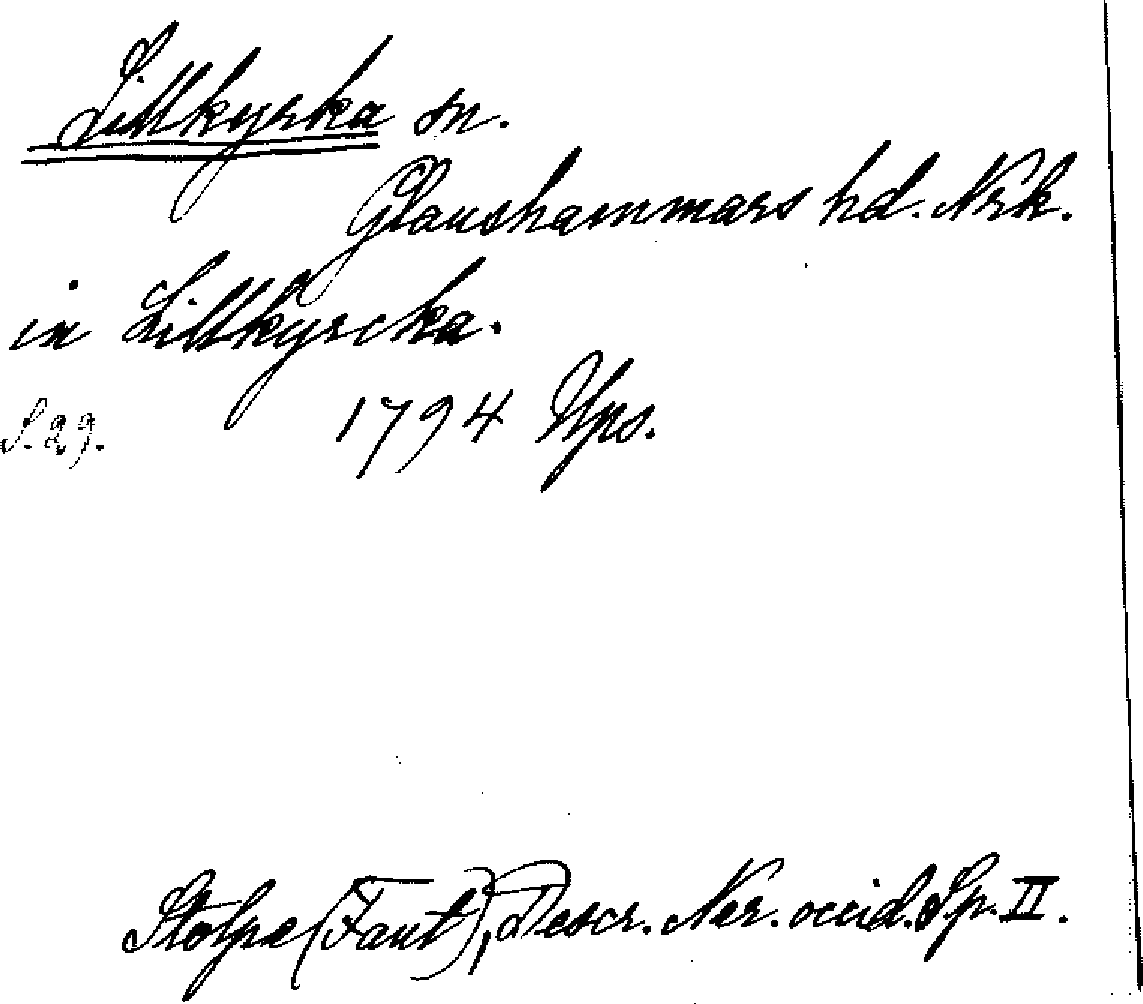 Lillkyrka sn.
Glanshammars hd. Nrk.
in Lillkyrcka.
S. 29. 1794 Ups.
Stolpe (Fant), Descr. Ner. occid. Sp. II.